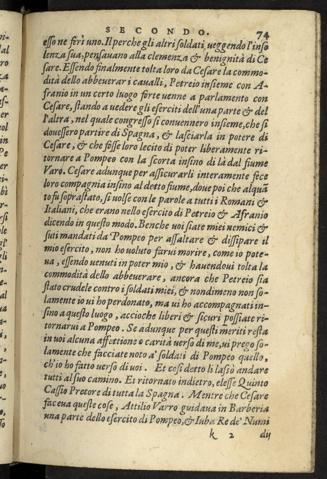 SECONDO. 74
esso ne ferì uno. Il perche gli altri soldati, veggendo l'inso
lenza sua, pensauano alla clemenza & benignità di Ce
sare. Essendo finalmente tolta loro da Cesare la commo-
dità dello abbeuerar i caualli, Petreio insieme con A-
franio in un certo luogo forte uenne a parlamento con
Cesare, stando a uedere gli eserciti dell'una parte & del
l'altra, nel quale congresso si conuennero insieme, che si
douessero partire di Spagna, & lasciarla in potere di
Cesare, & che fosse loro lecito di poter liberamente ri-
tornare a Pompeo con la scorta insino di là dal fiume
Varo. Cesare adunque per assicurarli interamente fece
loro compagnia insino al detto fiume, doue poi che alquā
to fu soprastato, si uolse con le parole a tutti i Romani &
Italiani, che erano nello esercito di Petreio & Afranio
dicendo in questo modo. Benche uoi siate miei nemici &
sui mandati da Pompeo per assaltare & dissipare il
mio esercito, non ho uoluto farui morire, come io pote-
ua, essendo uenuti in poter mio, & hauendoui tolta la
commodità dello abbeuerare, ancora che Petreio sia
stato crudele contro i soldati miei, & nondimeno non so-
lamente io ui ho perdonato, ma ui ho accompagnati in-
sino a questo luogo, accioche liberi & sicuri possiate ri-
tornarui a Pompeo. Se adunque per questi meriti resta
in uoi alcuna affettione o carità uerso di me, ui prego so-
lamente che facciate noto a' soldati di Pompeo quello,
ch'io ho fatto uerso di uoi. Et così detto li lasciò andare
tutti al suo camino. Et ritornato indietro, elesse Quinto
Cassio Pretore di tutta la Spagna. Mentre che Cesare
faceua queste cose, Attilio Varro guidaua in Barberia
una parte dello esercito di Pompeo, & Iuba Re de' Numi
k 2 dij